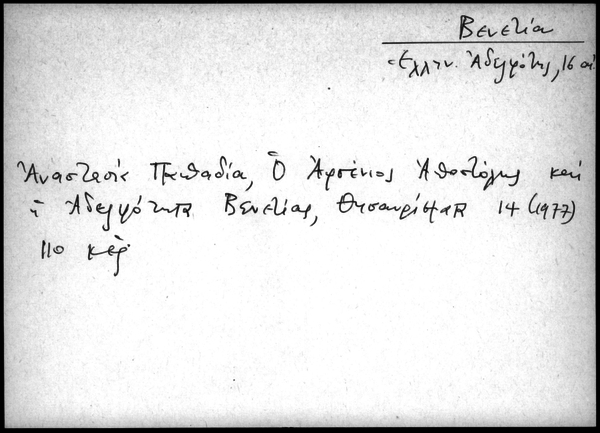 Βενετία
Ἑλλην. Ἀδελφότης, 16 αἰ
Ἀναστασία Παπαδία, Ὁ Ἀρσένιος Ἀποστόλης καὶ
ἡ Ἀδελφότητα Βενετίας, Θησαυρίσματα 14 (1977)
110 κἑξ